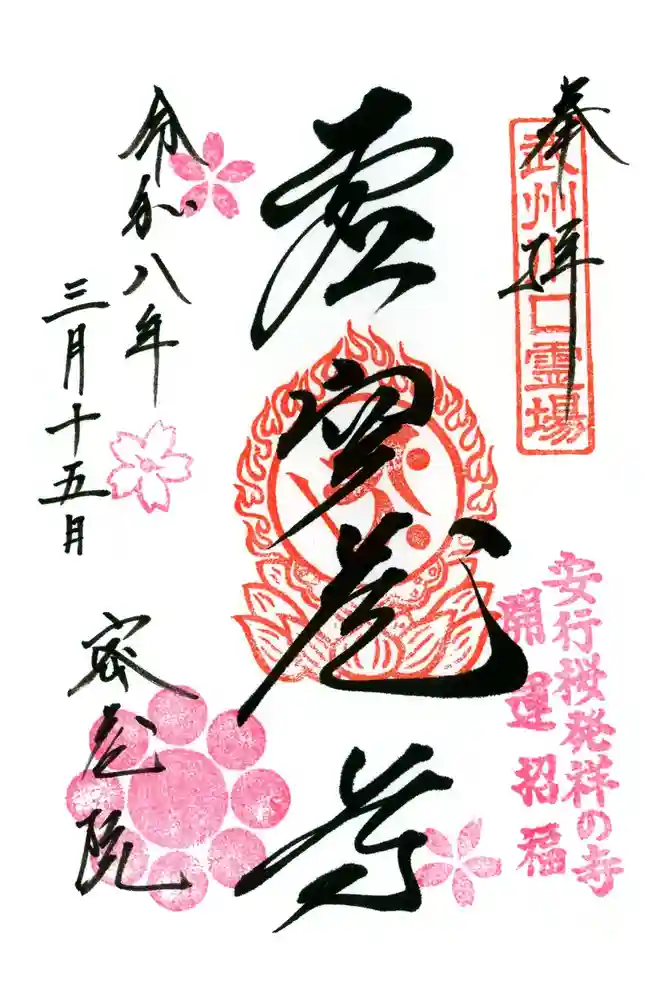 奉拝
武州川口霊場
安行桜発祥の寺
開運招福
虚空蔵尊
令和八年
三月十五日
密蔵院